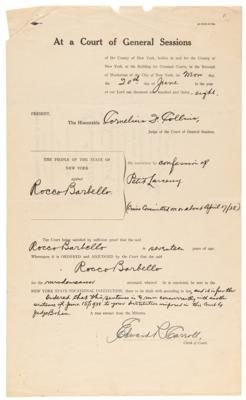 At a Court of General Sessions
of the County of New York, holden in and for the County of
New York, at the Building for Criminal Courts, in the Borough
of Manhattan of the City of New York, on Mon
the 20th day of June in the year
of our Lord one thousand nine hundred and thirty eight.
PRESENT,
The Honorable Cornelius F. Collins,
Judge of the Court of General Sessions.
THE PEOPLE OF THE STATE OF
NEW YORK
against
Rocco Barbello
On conviction by confession of
Petit Larceny
(Crime Committed on or about April 17/38)
The Court being satisfied by sufficient proof that the said
Rocco Barbello is seventeen years of age.
Whereupon it is ORDERED and ADJUDGED by the Court that the said
Rocco Barbello
for the misdemeanor aforesaid, whereof he is convicted, be sent to the
NEW YORK STATE VOCATIONAL INSTITUTION, there to be dealt with according to law, and it is further
ordered that this sentence is to run concurrently with another
sentence of June 15, 1938 to your institution imposed in this Court by
Judge Bohan.
A true extract from the Minutes.
Edward R. Carroll,
Clerk of Court.